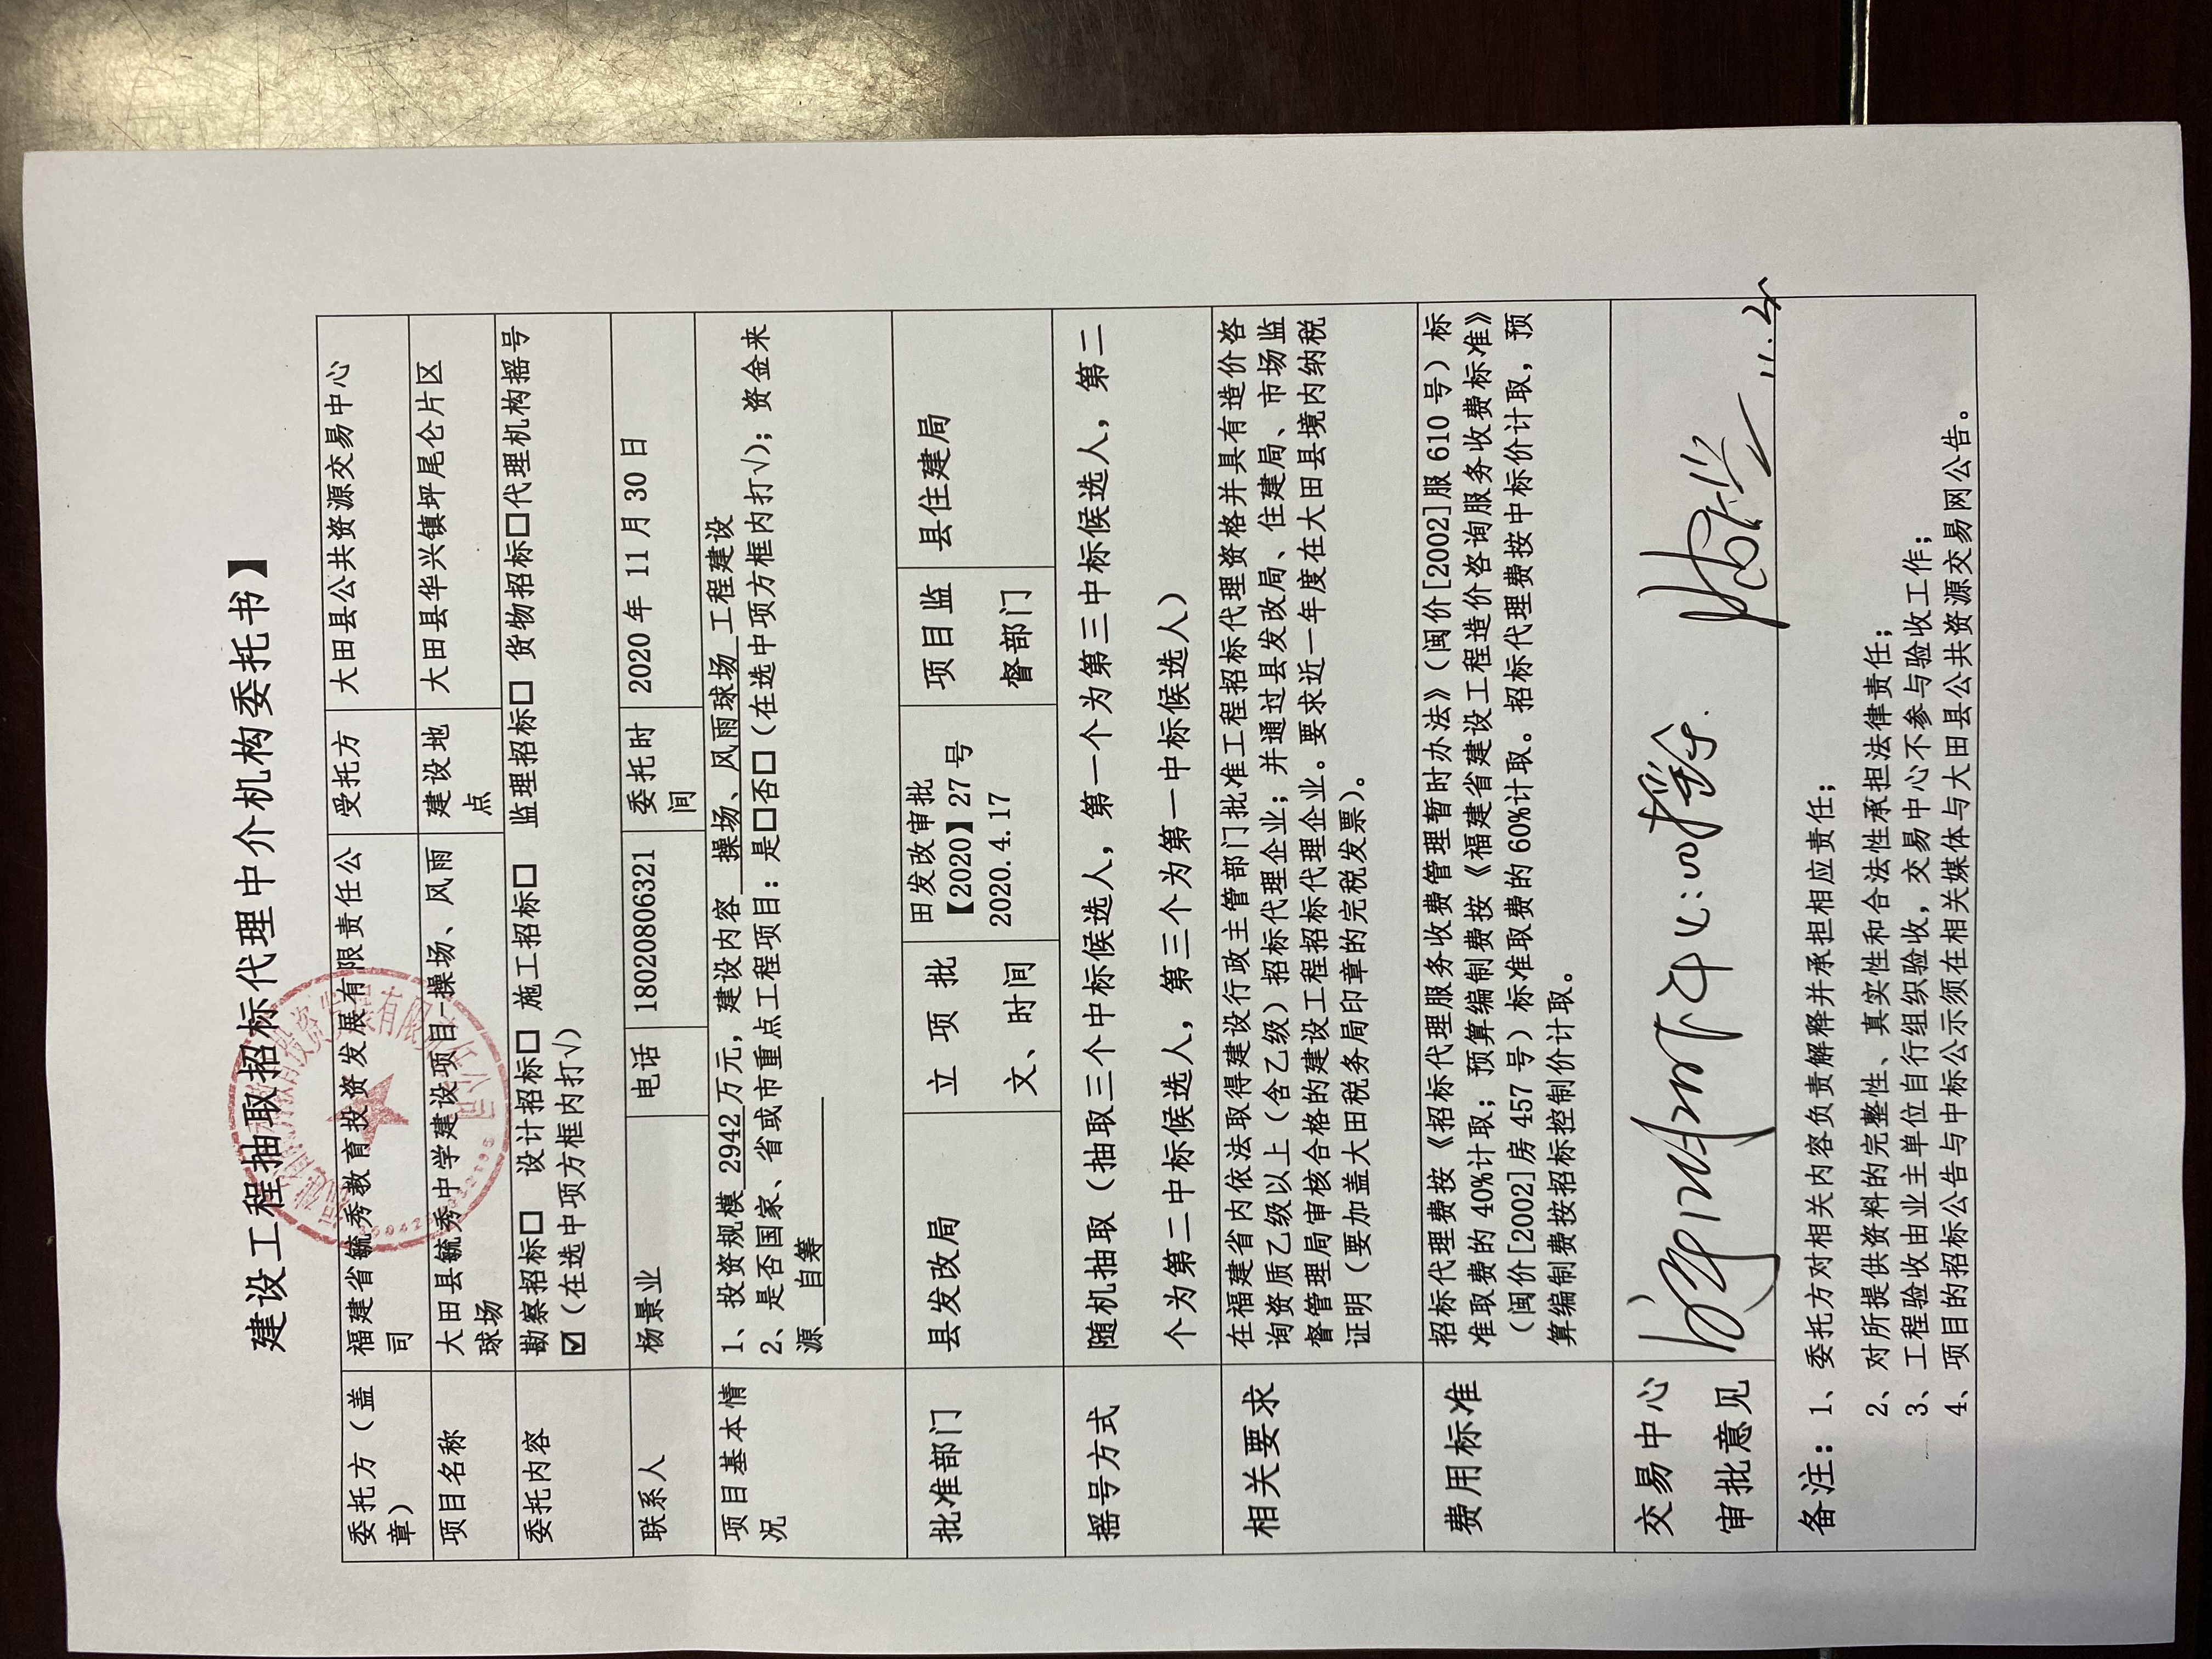 建设工程抽取招标代理中介机构委托书】
委托方（盖章） 福建省毓秀教育投资发展有限责任公司 受托方 大田县公共资源交易中心
项目名称 大田县毓秀中学建设项目-操场、风雨球场 建设地点 大田县华兴镇坪尾仑片区
委托内容 勘察招标□ 设计招标□ 施工招标□ 监理招标□ 货物招标□代理机构摇号
☑（在选中项方框内打√）
联系人 杨景业 电话 18020806321 委托时间 2020 年 11 月 30 日
项目基本情况 1、投资规模 2942 万元，建设内容 操场、风雨球场 工程建设
2、是否国家、省或市重点工程项目：是□否□（在选中项方框内打√）；资金来
源 自筹
批准部门 县发改局 立项批文、时间 田发改审批【2020】27 号 2020.4.17 项目监督部门 县住建局
摇号方式 随机抽取（抽取三个中标候选人，第一个为第三中标候选人，第二
个为第二中标候选人，第三个为第一中标候选人）
相关要求 在福建省内依法取得建设行政主管部门批准工程招标代理资格并具有造价咨
询资质乙级以上（含乙级）招标代理企业；并通过县发改局、住建局、市场监
督管理局审核合格的建设工程招标代理企业。要求近一年度在大田县境内纳税
证明（要加盖大田税务局印章的完税发票）。
费用标准 招标代理费按《招标代理服务收费管理暂时办法》（闽价[2002]服 610 号）标
准取费的 40%计取；预算编制费按《福建省建设工程造价咨询服务收费标准》
（闽价[2002]房 457 号）标准取费的 60%计取。招标代理费按中标价计取，预
算编制费按招标控制价计取。
交易中心
审批意见
11.4
备注：1、委托方对相关内容负责解释并承担相应责任；
2、对所提供资料的完整性、真实性和合法性承担法律责任；
3、工程验收由业主单位自行组织验收，交易中心不参与验收工作；
4、项目的招标公告与中标公示须在相关媒体与大田县公共资源交易网公告。